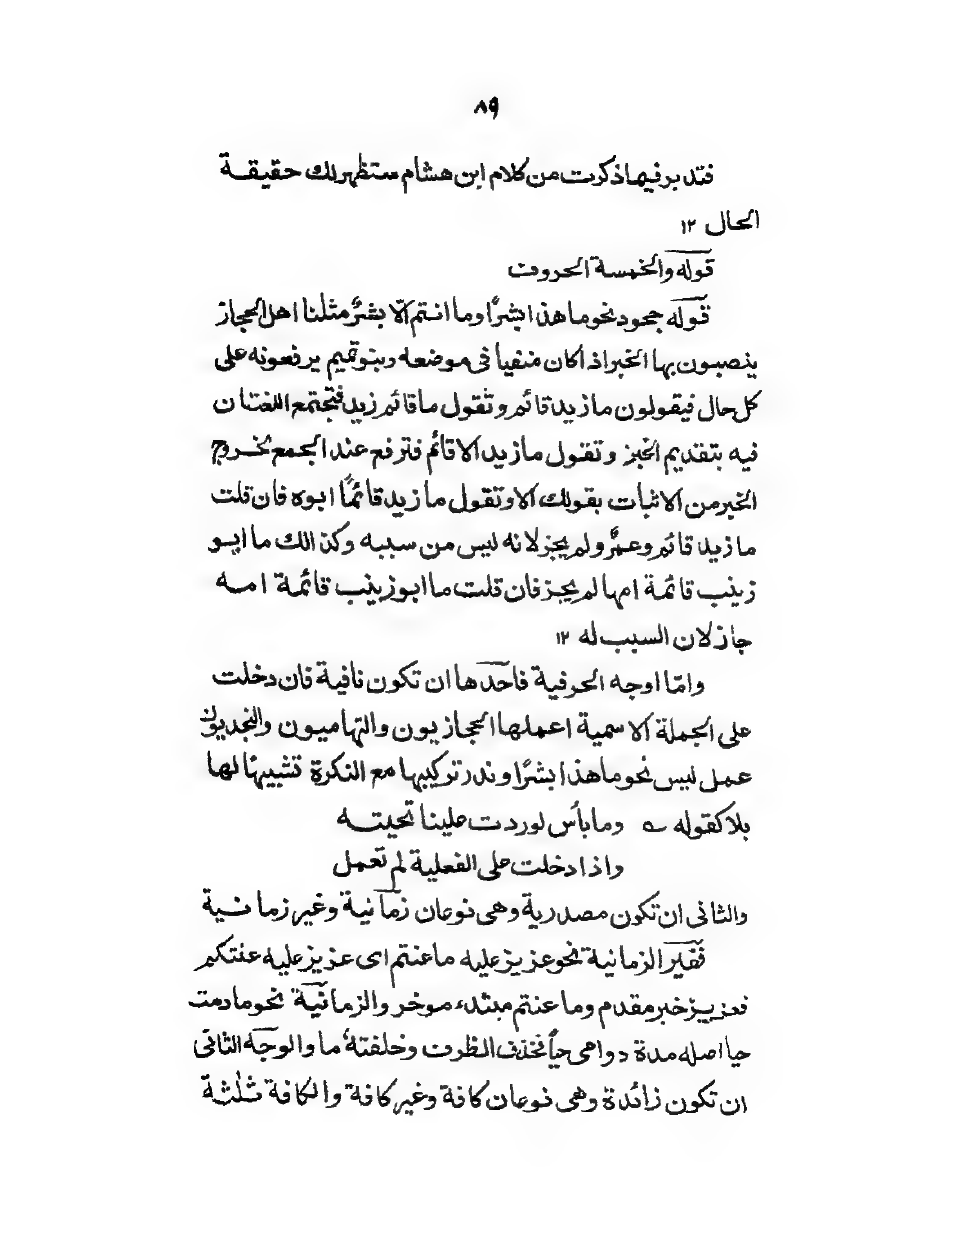 ٨٩
فتدبر فيما ذكرت من كلام ابن هشام ستظهر لك حقيقة
الحال ١٢
قوله والخمسة الحروف
قوله جحود نحو ما هذا بشرًا وما انتم الا بشرٌ مثلنا اهل الحجاز
ينصبون بها الخبر اذا كان منفيا في موضعه وبنو تميم يرفعونه على
كل حال فيقولون ما زيد قائم وتقول ما قائم زيد فتجتمع اللغتان
فيه بتقديم الخبر وتقول ما زيد الا قائم فترفع عند الجمع لخروج
الخبر من الاثبات بقولك الا وتقول ما زيد قائمًا ابوه فان قلت
ما زيد قائم وعمرٌو لم يجز لانه ليس من سببه وكذالك ما ابو
زينب قائمة امها لم يجز فان قلت ما ابو زينب قائمة امه
جاز لان السبب له ١٢
وامّا اوجه الحرفية فاحدها ان تكون نافية فان دخلت
على الجملة الاسمية اعملها الحجازيون والتهاميون والنجديون
عمل ليس نحو ما هذا بشرًا وندر تركيبها مع النكرة تشبيهًا لها
بلا كقوله ؎ وما بأس لو ردت علينا تحيته
واذا دخلت على الفعلية لم تعمل
والثانى ان تكون مصدرية وهى نوعان زمانية وغير زمانية
فغير الزمانية نحو عزيز عليه ما عنتم اى عزيز عليه عنتكم
فعزيز خبر مقدم وما عنتم مبتدء موخر والزمانية نحو ما دمت
حيا اصله مدة دوامى حيًا فحذف الظرف وخلفته ما والوجه الثانى
ان تكون زائدة وهى نوعان كافة وغير كافة والكافة ثلٰثة